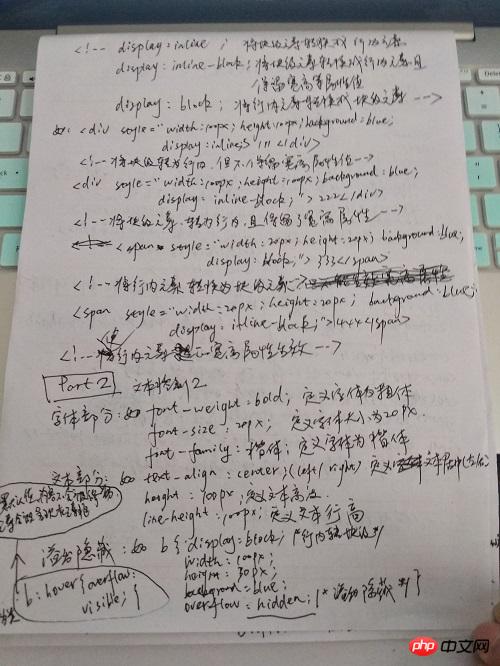 <!-- display:inline; 将块的元素转换成行内元素
display:inline-block; 将块的元素转换成行内元素且
保留宽高等属性值
display: block; 将行内元素转换成块的元素 -->
如: <div style="width:100px; height:100px; background:blue;
display:inline;">111</div>
<!-- 将块的转为行内, 但不保留宽高属性值-->
<div style="width:100px; height:100px; background:blue;
display: inline-block;">222</div>
<!-- 将块的元素,转为行内,且保留了宽高属性-->
<span style="width:20px; height:20px; background:blue;
display:block;">333</span>
<!-- 将行内元素转换为块的元素
<span style="width:20px; height:20px; background:blue;
display:inline-block;">444</span>
<!-- 使行内元素 宽高属性生效 -->
Part 2 文本 12
字体部分: 如 font-weight:bold; 定义字体为粗体
font-size: 20px; 定义字体大小为20px.
font-family:楷体; 定义字体为楷体
文本部分: 如 text-align:center; (left/right) 定义文本居中(左右)
height:100px; 定义文本高度
line-height:100px; 定义文本行高
溢出隐藏: 如 b{display:block; /*行内转块的*/
width:100px;
height:30px;
background:blue;
overflow:hidden; /*溢出隐藏*/}
b:hover{overflow:
visible;}
php 中文网